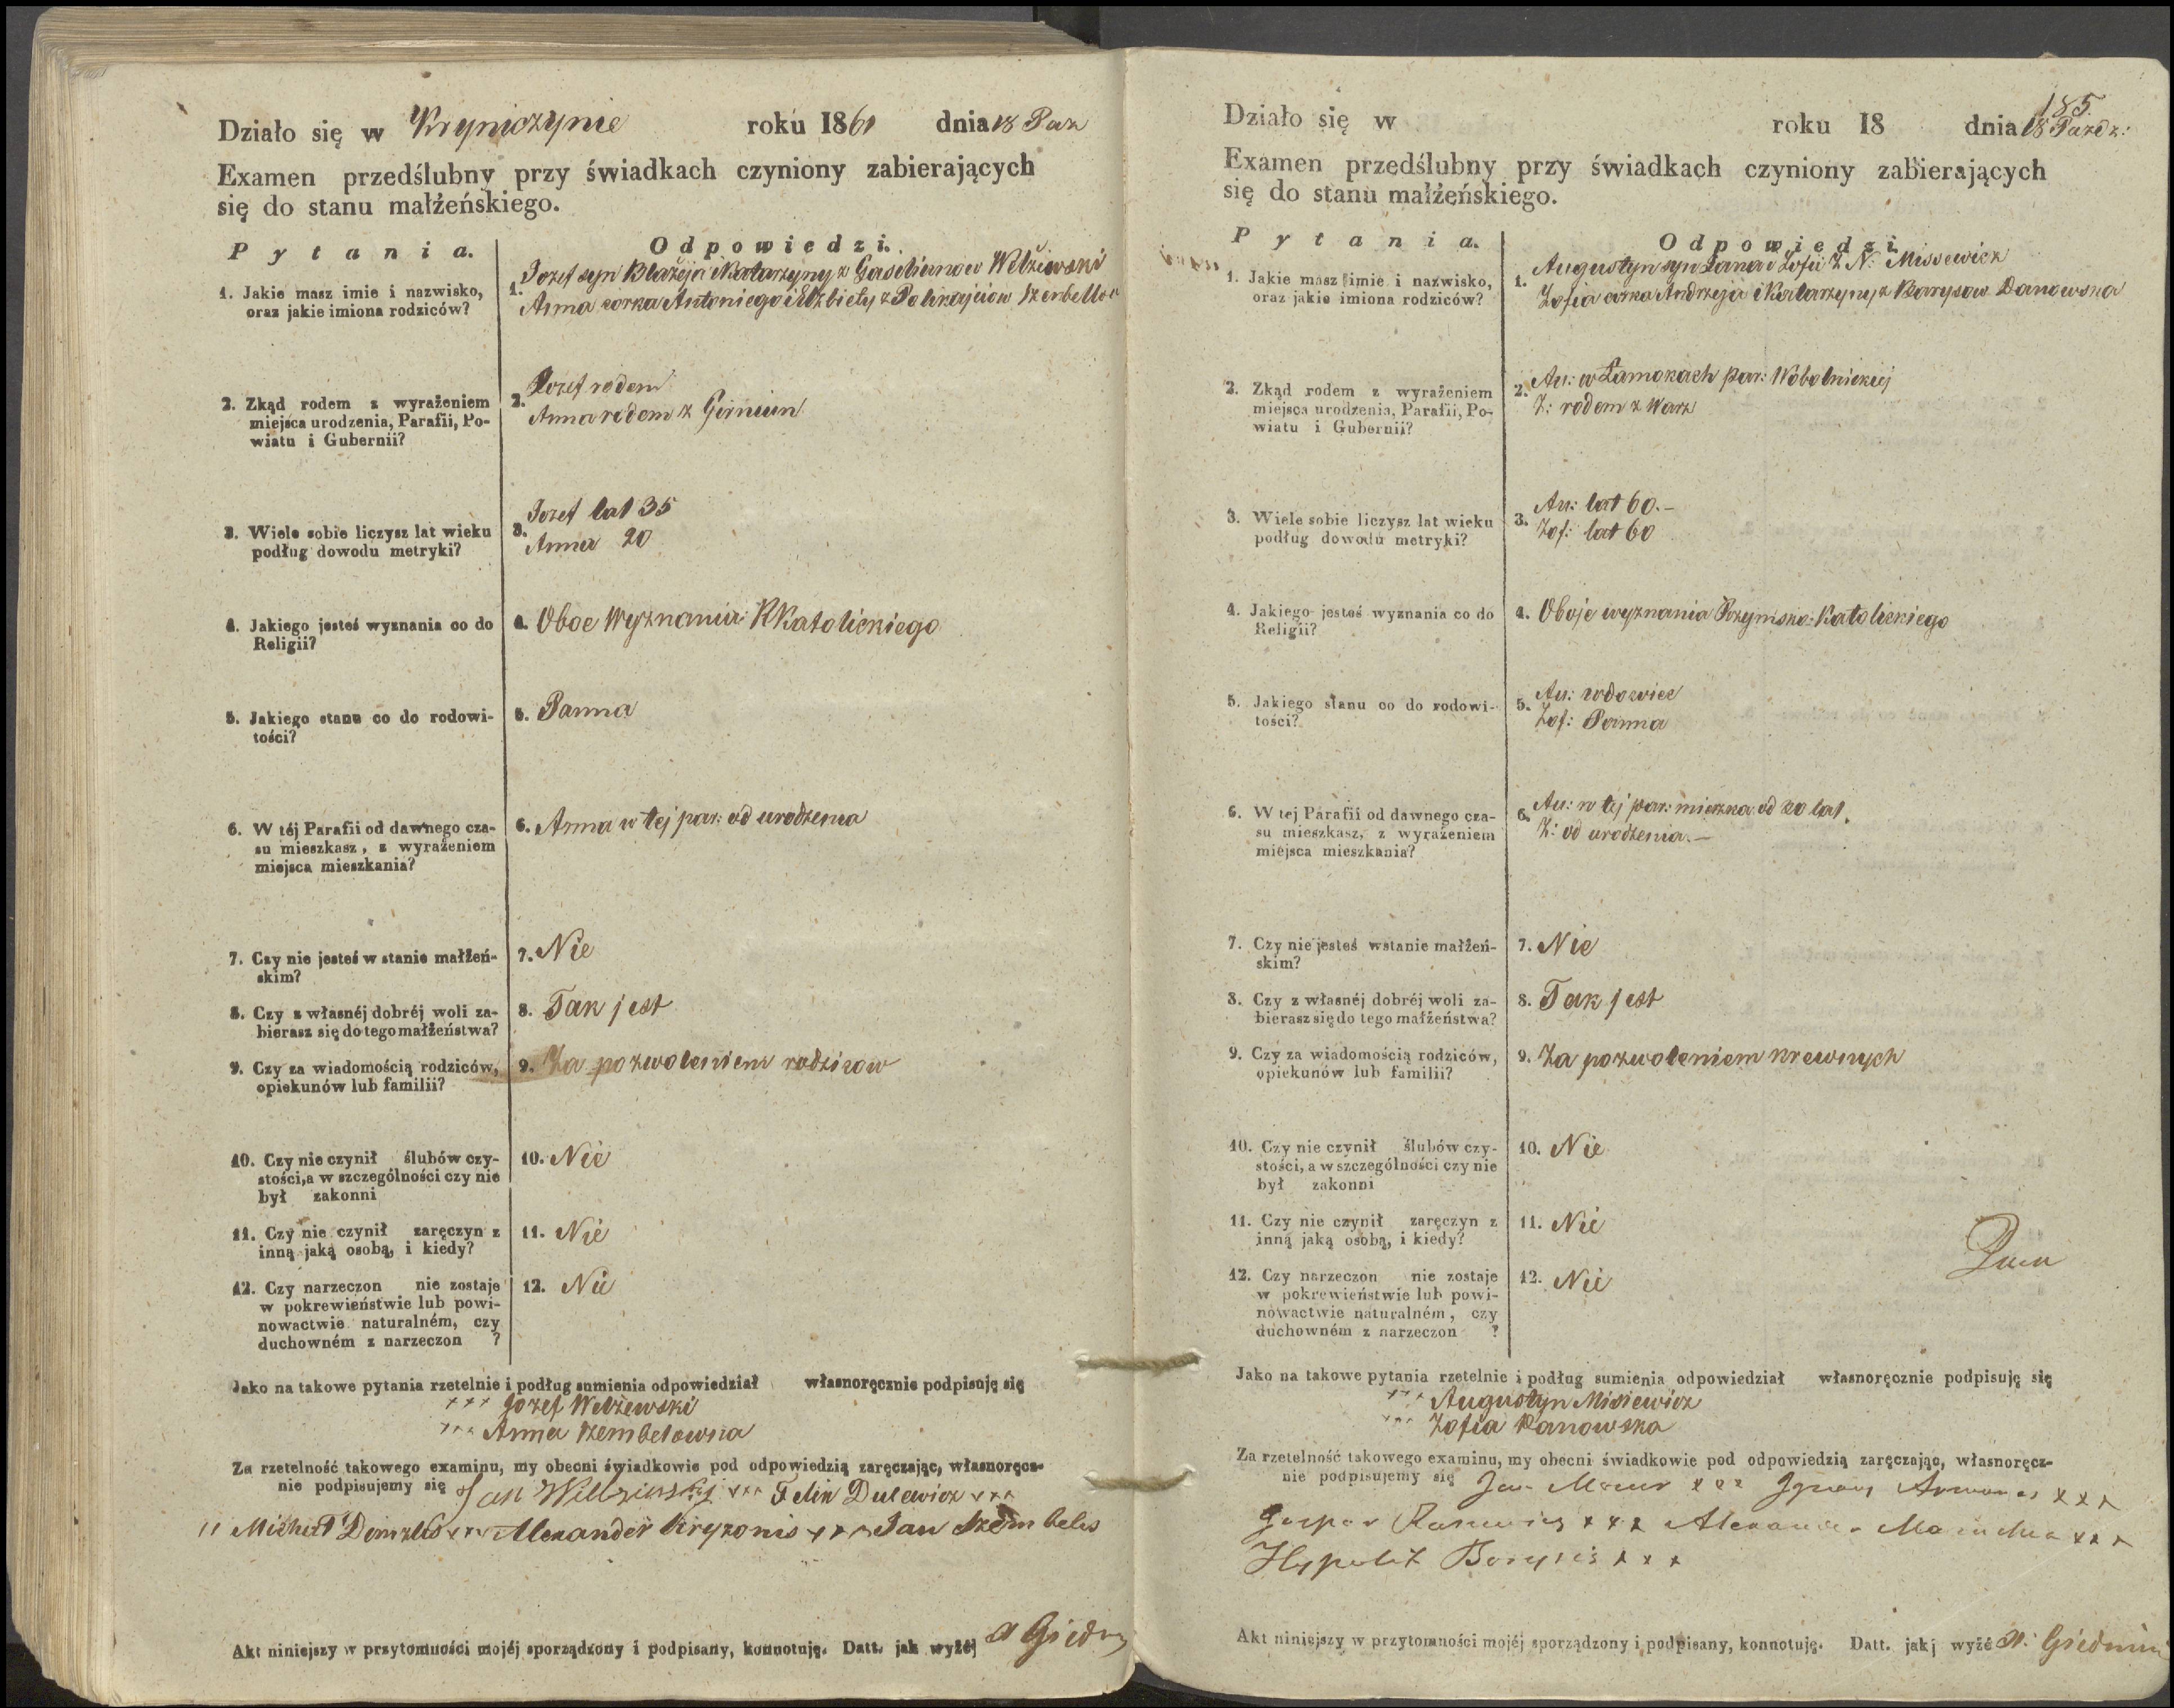 Działo się w Kryniczynie roku 1861 dnia 18 Paz
Examen przedślubny przy świadkach czyniony zabierających
się do stanu małżeńskiego.
Pytania.
Odpowiedzi.
1. Jakie masz imie i nazwisko,
oraz jakie imiona rodziców?
1. Jozef syn Błażeja i Katarzyny z
Anna corka Antoniego i Elzbiety z
2. Zkąd rodem z wyrażeniem
miejsca urodzenia, Parafii, Po-
wiatu i Gubernii?
2. Jozef rodem
Anna rodem z
3. Wiele sobie liczysz lat wieku
podług dowodu metryki?
3. Jozef lat 35
Anna 20
4. Jakiego jesteś wyznania co do
Religii?
4. Oboe wyznania RKatolickiego
5. Jakiego stanu co do rodowi-
tości?
5. Panna
6. W téj Parafii od dawnego cza-
su mieszkasz, z wyrażeniem
miejsca mieszkania?
6. Anna w tej par: od urodzenia
7. Czy nie jesteś w stanie małżeń-
skim?
7. Nie
8. Czy z własnéj dobréj woli za-
bierasz się do tego małżeństwa?
8. Tak jest
9. Czy za wiadomością rodziców,
opiekunów lub familii?
9. Za pozwoleniem rodzicow
10. Czy nie czynił ślubów czy-
stości, a w szczególności czy nie
był zakonni
10. Nie
11. Czy nie czynił zaręczyn z
inną jaką osobą, i kiedy?
11. Nie
12. Czy narzeczon nie zostaje
w pokrewieństwie lub powi-
nowactwie naturalném, czy
duchowném z narzeczon ?
12. Nie
Jako na takowe pytania rzetelnie i podług sumienia odpowiedział własnoręcznie podpisuję się
+++ Jozef Welżewski
+++ Anna Szembelowna
Za rzetelność takowego examinu, my obecni świadkowie pod odpowiedzią zaręczając, własnoręcz-
nie podpisujemy się Jan +++ Felix Dulewicz +++
Michał +++ Alexander Kryzonis +++ Jan Szembelis
Akt niniejszy w przytomności mojéj sporządzony i podpisany, konnotuję. Datt. jak wyżéj
185
Działo się w roku 18 dnia 18 Pazdz:
Examen przedślubny przy świadkach czyniony zabierających
się do stanu małżeńskiego.
Pytania.
Odpowiedzi
1. Jakie masz imie i nazwisko,
oraz jakie imiona rodziców?
1. Augustyn syn Jana i Zofii z N: Missewicz
Zofia corka Andrzeja i Katarzyny z Barysow Danowska
2. Zkąd rodem z wyrażeniem
miejsca urodzenia, Parafii, Po-
wiatu i Gubernii?
2. Au: w par: Wobolnickiej
Z: rodem z
3. Wiele sobie liczysz lat wieku
podług dowodu metryki?
3. Au: lat 60.–
Zof: lat 60
4. Jakiego jesteś wyznania co do
Religii?
4. Oboje wyznania Rzymsko: Katolickiego
5. Jakiego stanu co do rodowi-
tości?
5. Au: wdowiec
Zof: Panna
6. W tej Parafii od dawnego cza-
su mieszkasz, z wyrażeniem
miejsca mieszkania?
6. Au: w tej par: mieszka od 20 lat.
Z: od urodzenia.–
7. Czy nie jesteś wstanie małżeń-
skim?
7. Nie
8. Czy z własnéj dobréj woli za-
bierasz się do tego małżeństwa?
8. Tak jest
9. Czy za wiadomością rodziców,
opiekunów lub familii?
9. Za pozwoleniem krewnych
10. Czy nie czynił ślubów czy-
stości, a w szczególności czy nie
był zakonni
10. Nie
11. Czy nie czynił zaręczyn z
inną jaką osobą, i kiedy?
11. Nie
12. Czy narzeczon nie zostaje
w pokrewieństwie lub powi-
nowactwie naturalném, czy
duchowném z narzeczon ?
12. Nie
Jako na takowe pytania rzetelnie i podług sumienia odpowiedział własnoręcznie podpisuję się
+++ Augustyn Misiewicz
+++ Zofia Danowska
Za rzetelność takowego examinu, my obecni świadkowie pod odpowiedzią zaręczając, własnoręcz-
nie podpisujemy się Jan +++ Ignacy +++
+++ +++
Hypolit Borysis +++
Akt niniejszy w przytomności mojéj sporządzony i podpisany, konnotuję. Datt. jakj wyżé